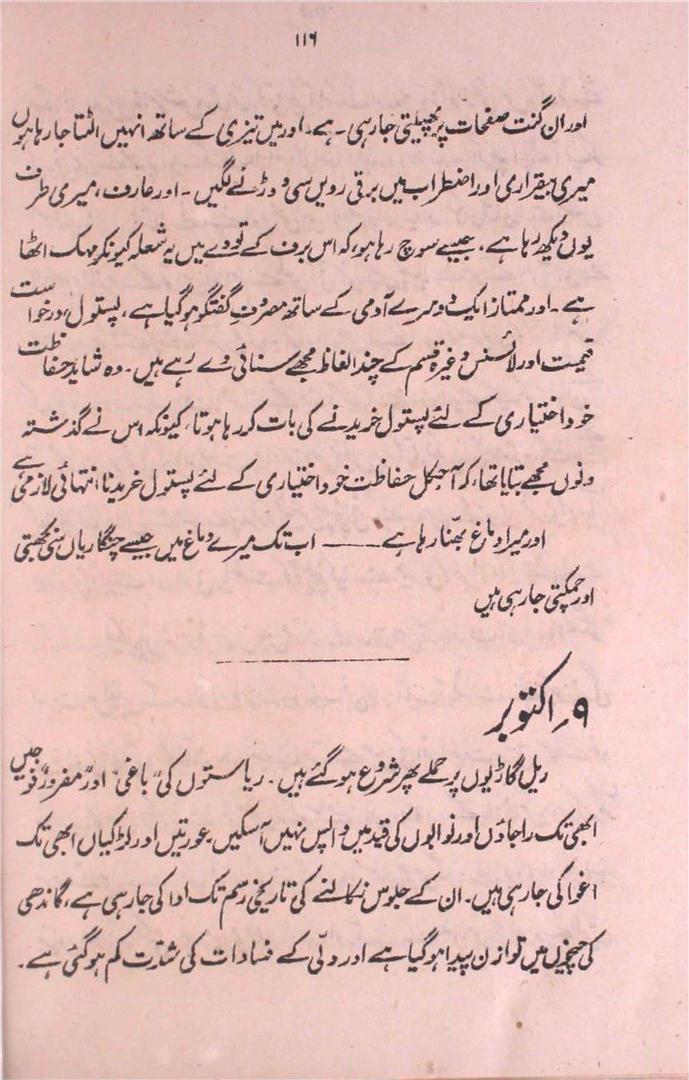 ۱۱۶
اور ان گنت صفحات پر پھیلیتی جا رہی ہے۔ اور میں تیزی کے ساتھ انہیں الٹتا جا رہا ہوں
میری بیقراری اور اضطراب میں برقی رویں سی دوڑنے لگیں۔ اور عارف، میری طرف
یوں دیکھ رہا ہے، جیسے سوچ رہا ہو، کہ اس برف کے تودے میں یہ شعلہ کیونکر بھڑک اٹھا
ہے۔ اور ممتاز ایک دوسرے آدمی کے ساتھ مصروفِ گفتگو ہو گیا ہے، پستول، درخواست
قیمت اور لائسنس وغیرہ قسم کے چند الفاظ مجھے سنائی دے رہے ہیں۔ وہ شاید حفاظت
خود اختیاری کے لئے پستول خریدنے کی بات کر رہا ہوتا، کیونکہ اس نے گذشتہ
دنوں مجھے بتایا تھا، کہ آجکل حفاظت خود اختیاری کے لئے پستول خریدنا انتہائی لازمی ہے
اور میرا دماغ بھنّا رہا ہے ——— اب تک میرے دماغ میں جیسے چنگاریاں سی بجھتی
اور چمکتی جا رہی ہیں
۹ اکتوبر
ریل گاڑیوں پر حملے پھر شروع ہو گئے ہیں۔ ریاستوں کی "باغی" اور "مفرور" فوجیں
ابھی تک راجاؤں اور نوابوں کی قید میں واپس نہیں آ سکیں۔ عورتیں اور لڑکیاں ابھی تک
اغوا کی جا رہی ہیں۔ ان کے جلوس نکالنے کی تاریخی رسم تک ادا کی جا رہی ہے، گاندھی
کی چیخوں میں توازن پیدا ہو گیا ہے اور دلّی کے فسادات کی شدّت کم ہو گئی ہے۔